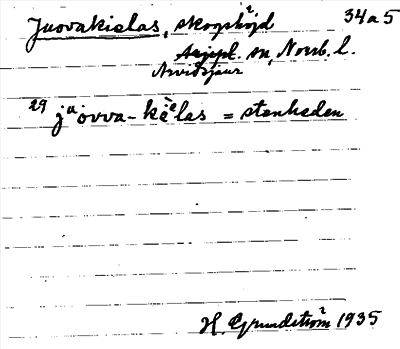 Juovakielas, skogshöjd 34a5
Arjepl. sn, Norrb. l.
Arvidsjaur
29 juovva-kēelas = stenheden
H. Grundström 1935